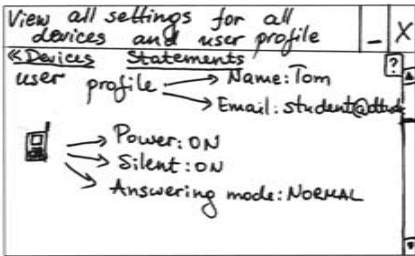 View all settings for all
devices and user profile
_ X
«Devices Statements
?
user profile → Name: Tom
→ Email: student@dtu.dk
→ Power: ON
→ Silent: ON
→ Answering mode: NORMAL